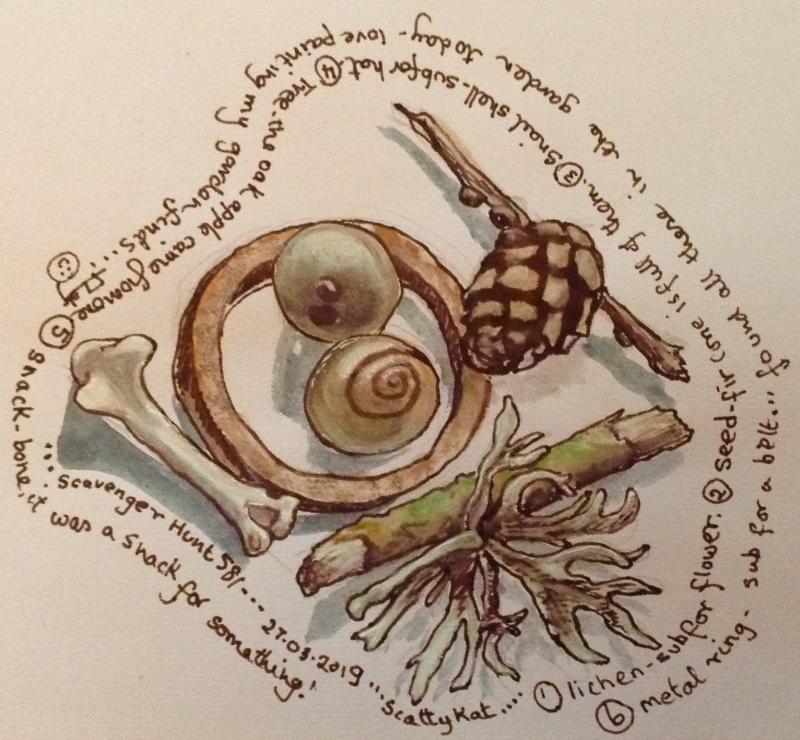 ...scavenger Hunt 581--- 27.03.2019 ...scattykat....
① lichen-sub for flower.
② seed-fir cone is full of them.
③ Snail shell-sub for hat.
④ Tree-the oak apple came from one.
⑤ snack-bone, it was a snack for something!
⑥ metal ring- sub for a belt... found all these in the garden today - love painting my garden finds....